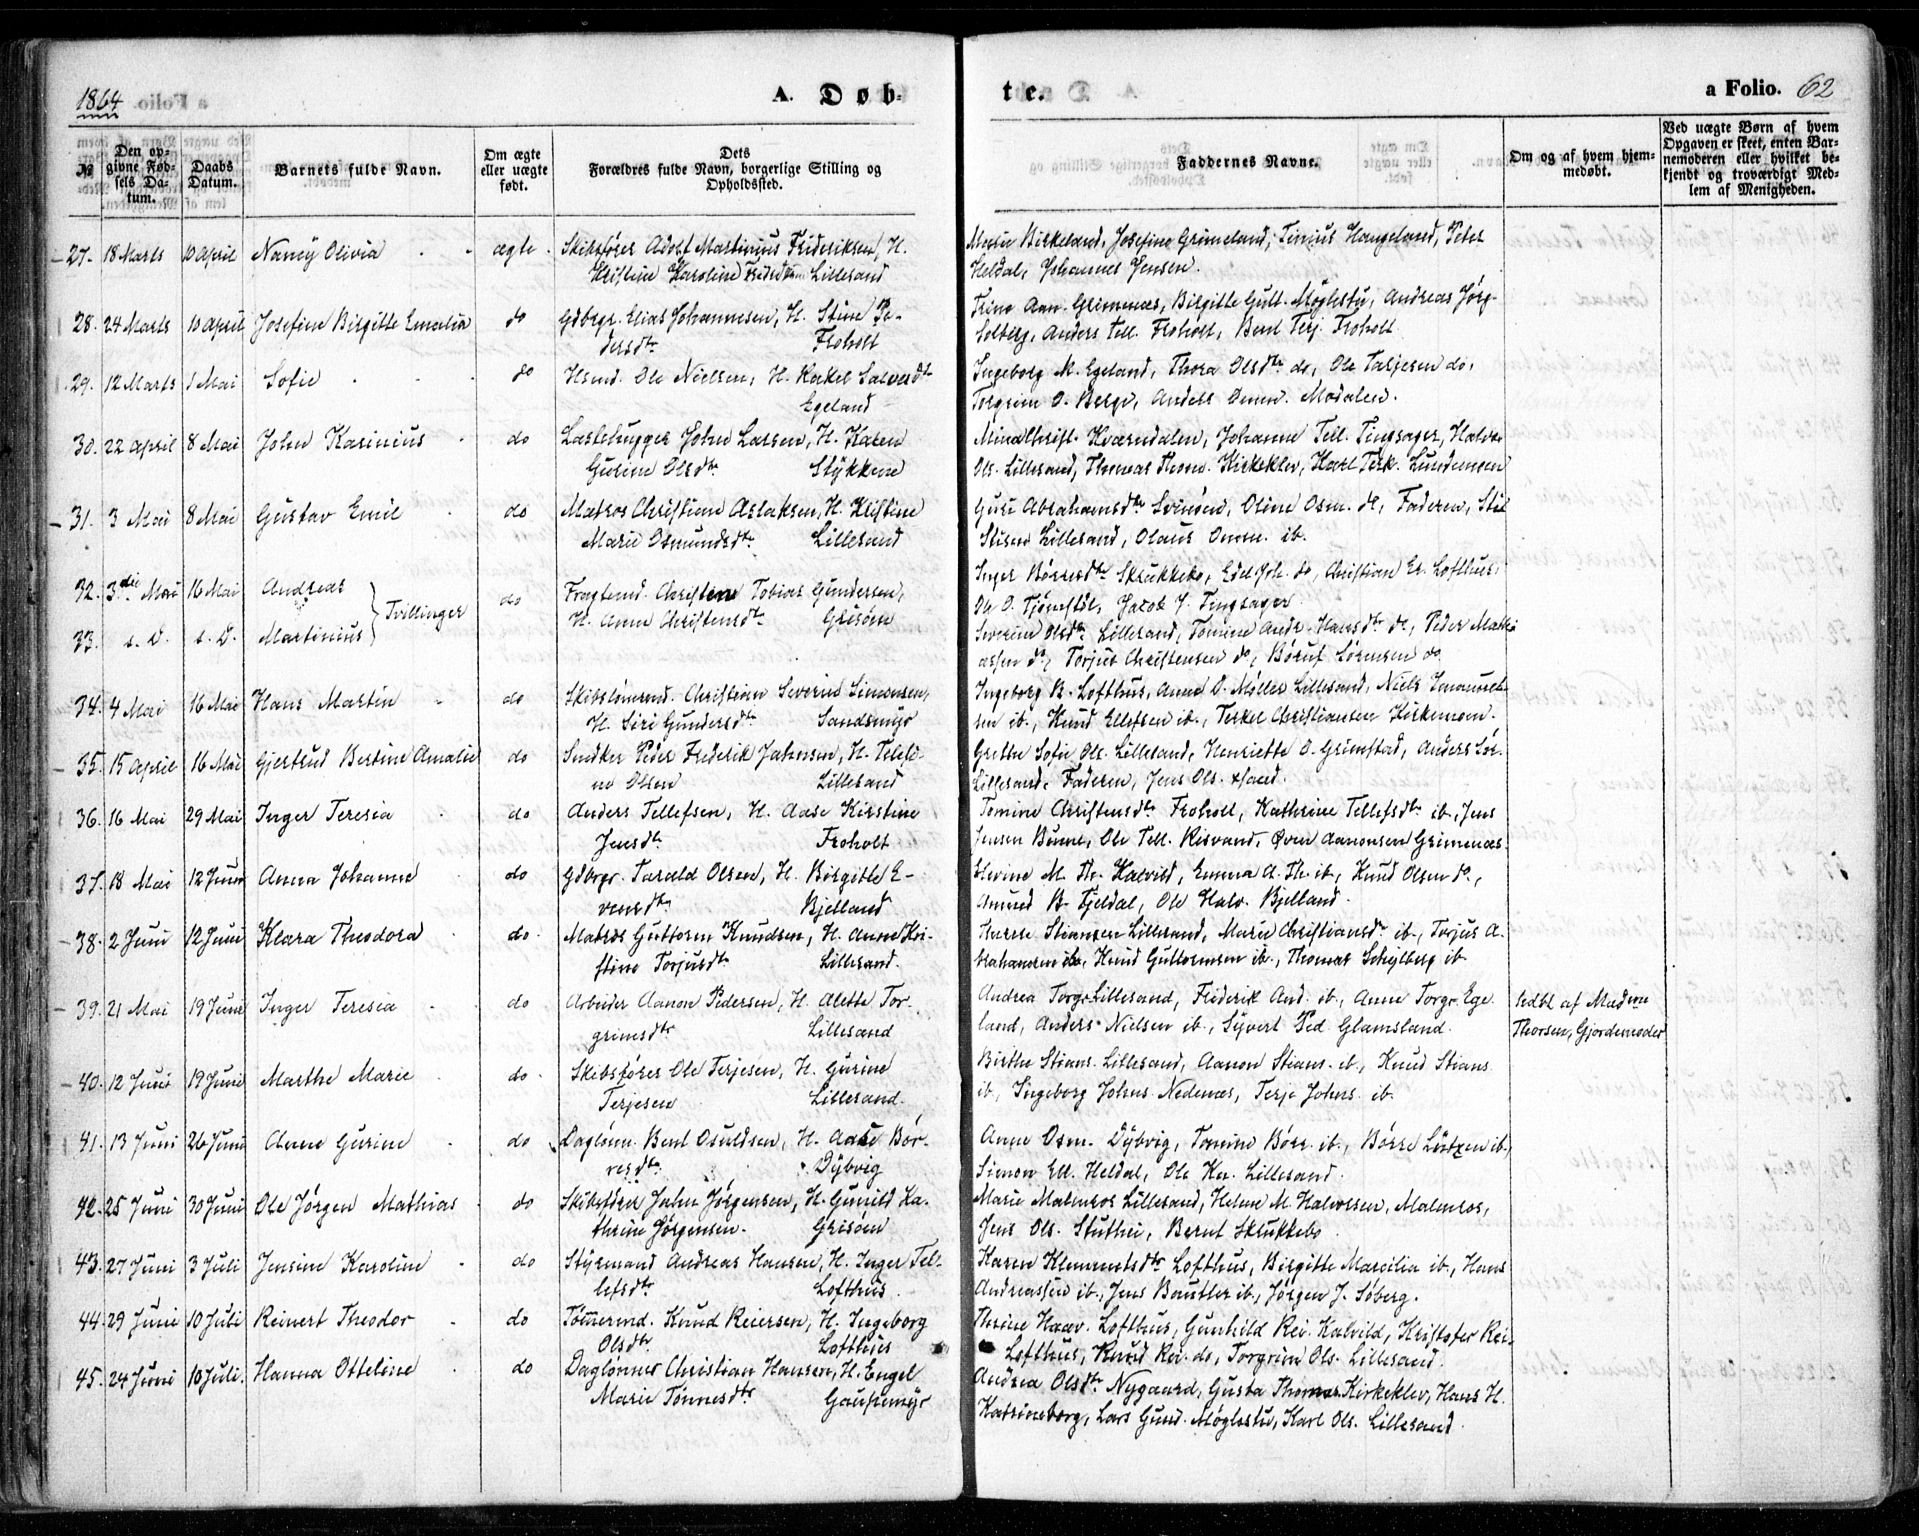 1864 A. Døb- te. a Folio. 62
№ Den opgivne Fødsels Datum. Daabs Datum. Barnets fulde Navn. Om ægte eller uægte født. Dets Forældres fulde Navn, borgerlige Stilling og Opholdssted. Faddernes Navne. Om og af hvem hjemmedøbt. Ved uægte Børn af hvem Opgaven er skeet, enten Barnemoderen eller hvilket bekjendt og troværdigt Medlem af Menigheden.
27. 18 Marts 10 April Nancy Olivia ægte Skibsfører Adolf Martinius Frideriksen, H. Maria Birkeland, Josefine Grimeland, Tinius Haugeland, Peter
Kristine Karoline Lillesand Heldal, Johannes Jensen.
28. 24 Marts 10 April Josefine Birgitte Emalia do Gdbrgr. Elias Johannesen, H. Stine Pe- Trine Aan. Grimenæs, Birgitte Gutt. Møglestu, Andreas Jørg.
dersdtr Froholt Solberg, Anders Tell. Froholt, Bent Terj. Froholt
29. 12 Marts 1 Mai Sofie do Hsmd. Ole Nielsen, H. Rakel Salvesdtr Ingeborg M. Egeland, Thora Olsdtr do, Ole Tarjesen do,
Egeland Torgrim O. Berge, Anders Omm. Modalen.
30. 22 April 8 Mai John Karinius do Lastehugger John Larsen, H. Karen Mina Christ. Kværndalen, Johanne Tell. Tingsager, Halv.
Gurine Olsdtr Stykkene Ols. Lillesand, Thomas Thom. Kirkeklev, Karl Terk. Lundemoen
31. 3 Mai 8 Mai Gustav Emil do Matros Christian Aslaksen, H. Kristine Guri Abrahamsdtr Lillesand, Oline Osm. do, Faderen, Stil
Marie Osmundsdtr Lillesand Stisen Lillesand, Olaus Omm. ib.
32. 3die Mai 16 Mai Andreas Tvillinger do Fragtemd. Christen Tobias Gundersen, Inger Børresdtr Skrukkebo, Edel Joh. do, Christian Er. Lofthus,
H. Anne Christensdtr Grisøen Ole O. Tjømstøl, Jacob J. Tingsager
33. s. D. s. D. Martinius Severine Olsdtr Lillesand, Tomine Andr. Hansdtr do, Peder Mathi
assen do, Torjus Christensen do, Børuf Sørensen do
34. 4 Mai 16 Mai Hans Martin do Skibstømrmd. Christian Severin Simonsen, Ingeborg B. Lofthus, Anne O. Møller Lillesand, Niels
H. Siri Gundersdtr Sandsmyr sen ib., Knud Ellefsen ib., Terkel Christiansen Kirkemoen.
35. 15 April 16 Mai Gjertrud Bertine Amalie do Snedker Peder Frederik Jahnsen, H. Telefi- Grethe Sofie Ols. Lillesand, Henriette O. Grimstad, Anders Sør.
ne Olsen Lillesand Lillesand, Faderen, Jens Ols.
36. 16 Mai 29 Mai Inger Teresia do Anders Tellefsen, H. Aase Kirstine Tomine Christensdtr Froholt, Kathrine Tellefsdtr ib., Jens
Jensdtr Froholt Jensen Bunne, Ole Tell. Risvand, Even Aanonsen Grimenæs.
37. 18 Mai 12 Juni Anna Johanne do Gdbrgr. Tarald Olsen, H. Birgitte E- Elevine M. Th. Kalvild, Emma A. Th. ib., Knud Olsen do,
vensdtr Bjelland Amund B. Tjeldal, Ole Halv. Bjelland.
38. 2 Juni 12 Juni Klara Theodora do. Matros Guttorm Knudsen, H. Anne Kri- Therese Stiansen Lillesand, Marie Christiansdtr ib., Torjus A-
stine Torjusdtr Lillesand. brahamsen ib., Knud Guttormsen ib., Thomas Schylberg ib
39. 21 Mai 19 Juni Inger Teresia do Arbeider Aanon Pedersen, H. Alette Tor- Andrea Torgr. Lillesand, Friderik And. ib., Anne Torgr. Ege hdbt af Madme
grimsdtr Lillesand land, Anders Nielsen ib., Syvert Ped. Glamsland. Thorsen, Gjordemoder
40. 12 Juni 19 Juni Marthe Marie do. Skibsfører Ole Terjesen, H. Gurine Birthe Stians. Lillesand, Aanon Stians. ib., Knud Stians.
Terjesen Lillesand. ib., Ingeborg Johns. Nedenæs, Terje Johns. ib.
41. 13 Juni 26 Juni Anne Gurine do Dagløn. Bent Osuldsen, H. Aase Bør- Anne Osm. Dybvig, Tomine Børr. ib., Børre Lütz­en ib.,
resdtr Dybvig Simon Ell. Heldal, Ole Kn. Lillesand.
42. 25 Juni 30 Juni Ole Jørgen Mathias do Skibsfører John Jørgensen, H. Gunild Ka- Marie Malmros Lillesand, Helene M. Halvorsen, Malmros,
thrine Jørgensen. Grisøen Jens Ols. Stuthei, Bernt Skrukkebo
43. 27 Juni 3 Juli Jensine Karoline do Styrmand Andreas Hansen, H. Inger Tel- Karen Klemmetsdtr Lofthus, Birgitte Marcilia ib., Hans
lefsdtr Lofthus. Andreassen ib., Jens Bautler ib., Jørgen J. Søberg.
44. 29 Juni 10 Juli Reinert Theodor do Tømmermd. Knud Reiersen, H. Ingeborg Thrine Haav. Lofthus, Gunhild Rei. Kalvild, Kristofer Rei-
Olsdtr Lofthus Lofthus, Knud Rei. do, Torgrim Ols. Lillesand.
45. 24 Juni 10 Juli. Hanna Otteline do Dagløner Christian Hansen, H. Engel Andrea Olsdtr. Nygaard, Gusta Thomas. Kirkeklev, Hans H.
Marie Tønnesdtr Gaupemyr Katrineborg, Lars Gund. Møglestu, Karl Ols. Lillesand.